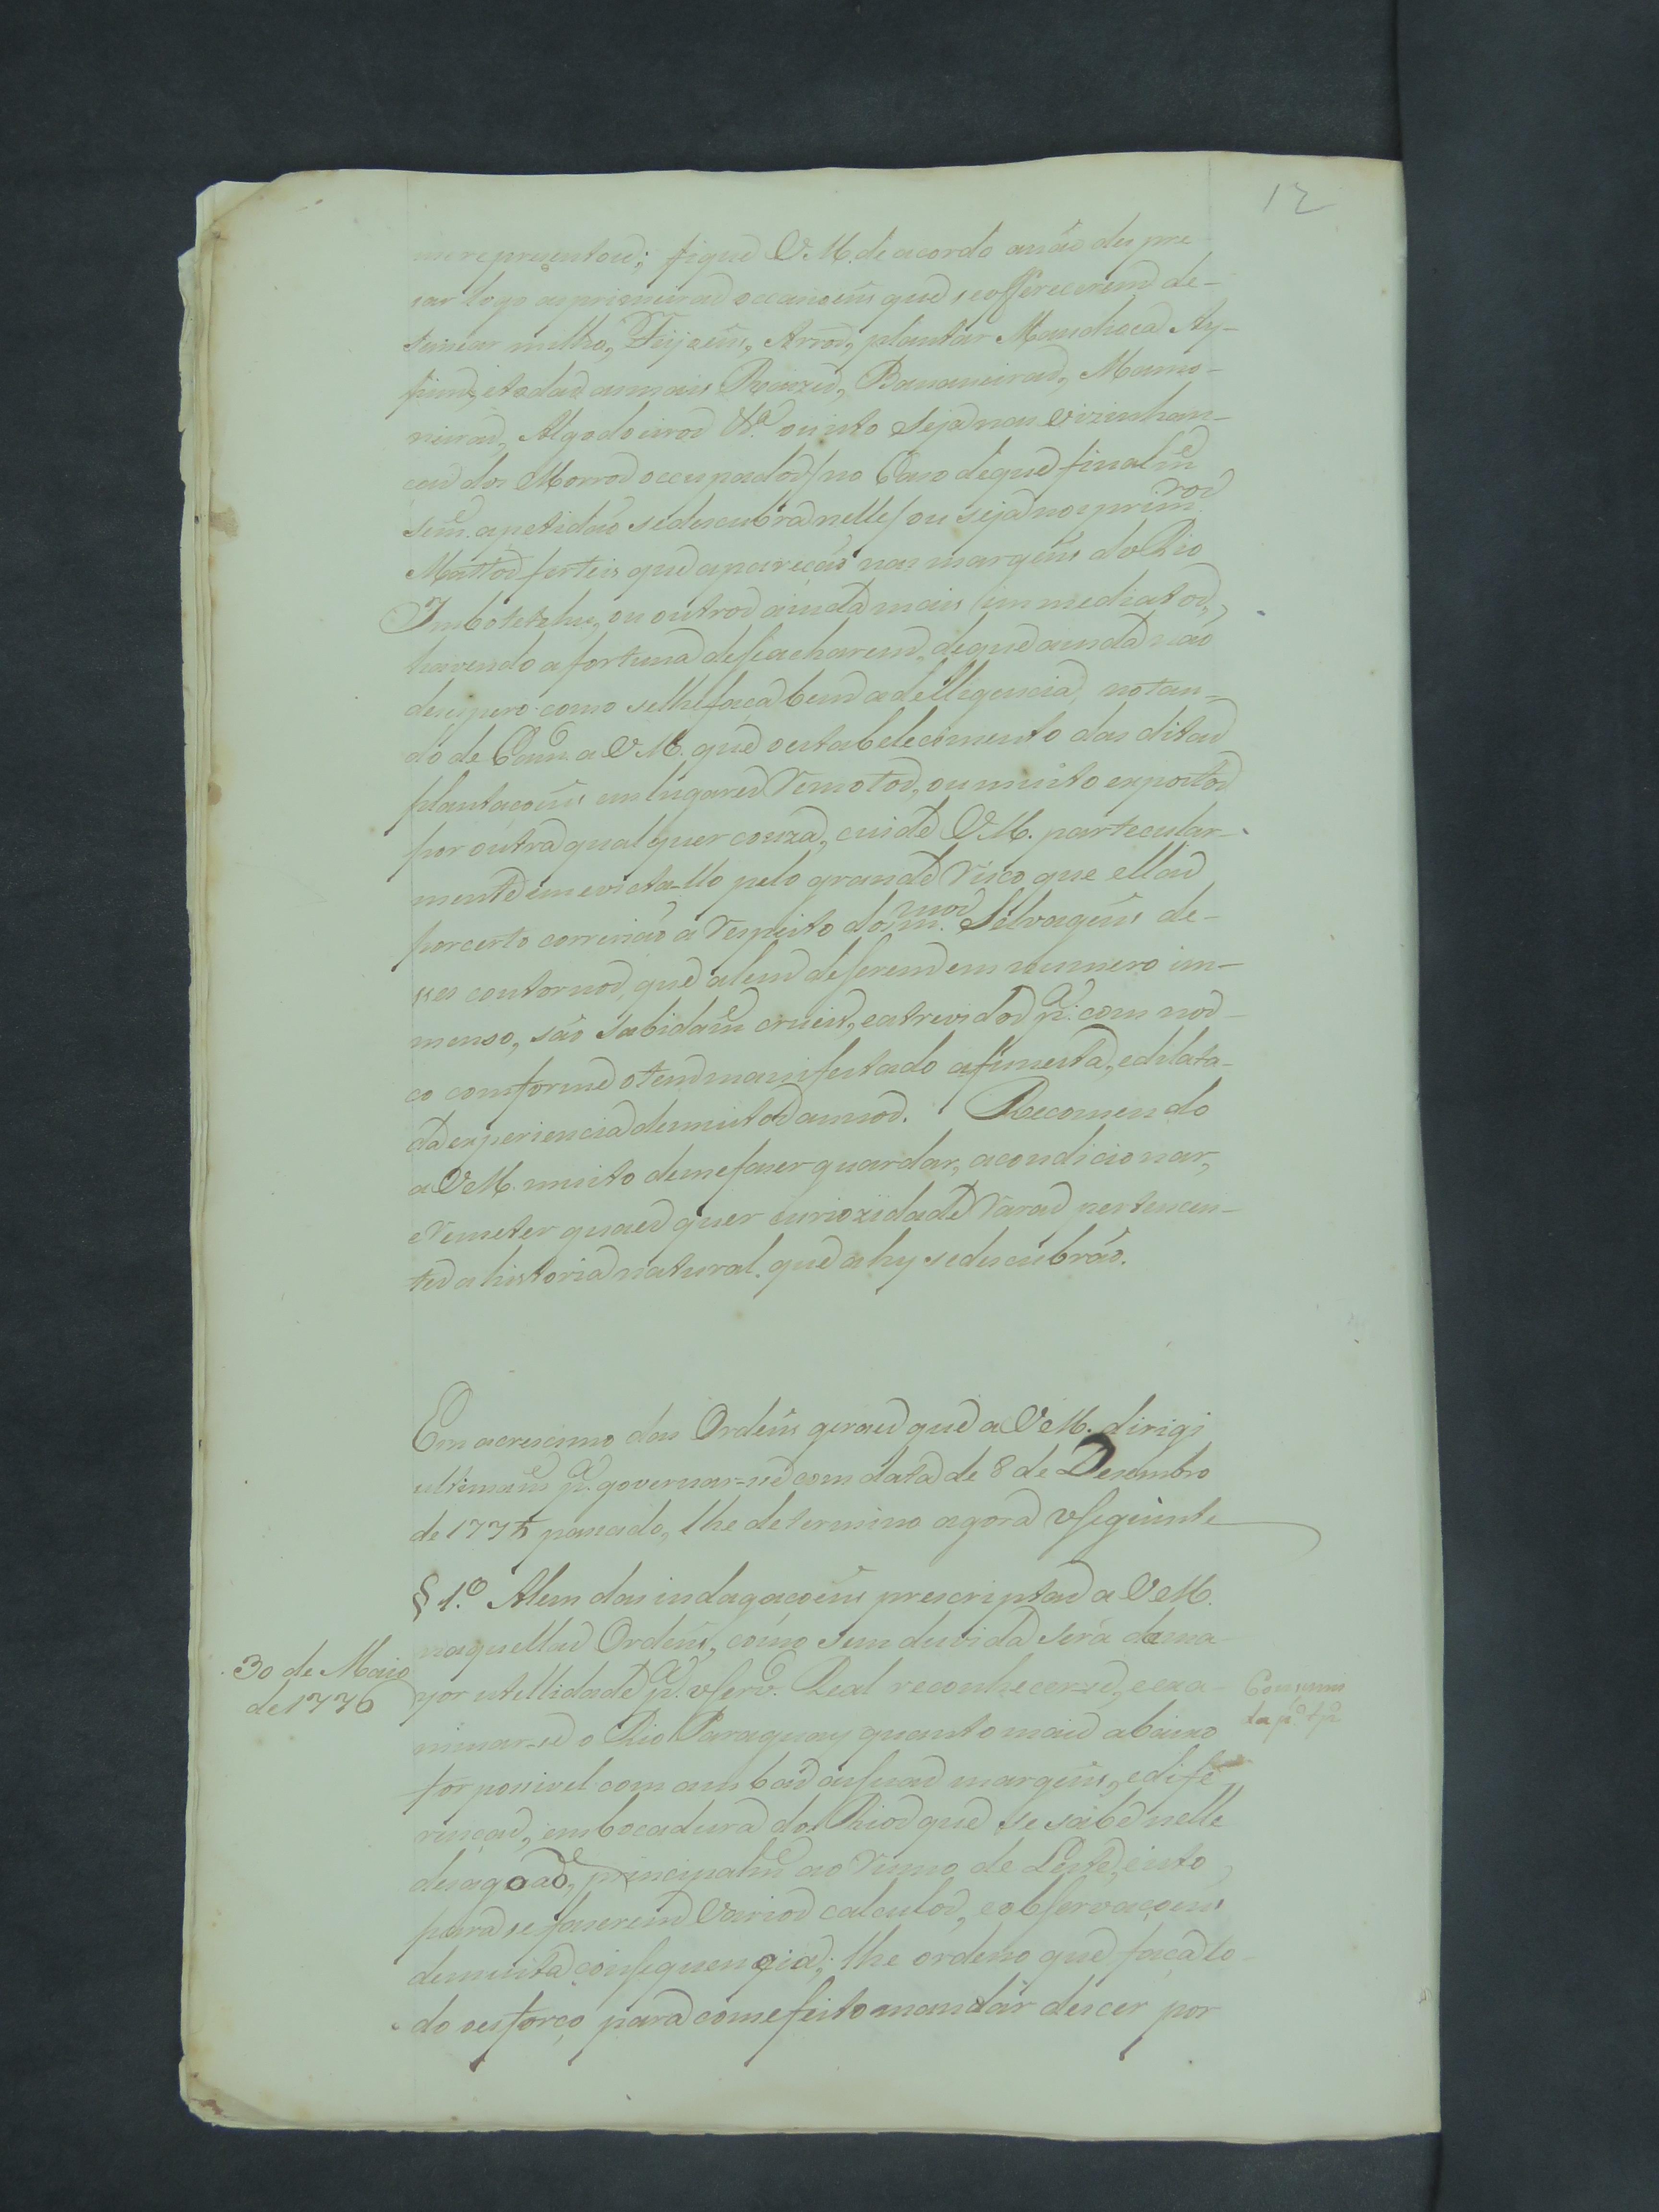 12
me representou; fique VM. de acordo a não despre
sar logo as primeiras occasioens que se offerecerem de-
semear milho, Feijoens, Arros, plantar Mandioca Ay-
pim, e todas as mais Raizes, Bananeiras, Mamo-
neiras, Algodoeiros &ª. ou isto seja nas vizinhan-
cas dos Morros occupados/no Caso de que finalmᵉ
semᵉ. apetidão se descubra nelle/ou seja nos primʳᵒˢ
Mattos ferteis que apareção nas margens do Rio
Imbotetehu, ou outros ainda mais immediatos,
havendo a fortuna de se acharem, de que ainda não
desespero como se lhe faça bem a delligencia, notan-
do de Camᵒ. a VM. que o estabelecimento das ditas
plantaçoens em lugares remotos, ou muito expostos
por outra qual quer couza, cuide VM. particular-
mente em evicta-llo pelo grande risco que ellas
por certo correrião a respeito do mᵐᵒˢ. Selvagens de-
sses contornos, que alem de serem em numero im-
menso, são sabidamᵉ crueis, e atrevidos pᵃ. com nos-
co comforme o tem manifestado a funesta, e dilata-
da experiencia de muitos annos. Recomendo
a VM. muito de me faser guardar, acondicionar,
e remeter quaes quer curiozidade raras pertencen-
tes a historia natural. que ahy se descubrão.
Em acrescimo das Ordens geraes que a VM. dirigi
ultimamᵉ pᵃ. governar-se com data de 8 de Desembro
de 1775 passado, lhe determino agora o seguinte
§ 1.º Alem das indagaçoens prescriptas a VM.
naquellas Ordens, como sem duvida será da ma-
30 de Maio
de 1776
yor utellidade pᵃ. o servᵒ. Real reconhecer-se, e exa-
minar-se o Rio Paraguay quanto mais abaixo
for possivel com ambas as suas margens, e dife-
renças, embocadura dos Rios que se sabe nelle
desagoão, principalmᵉ ao rumo de Leste, e isto
para se faserem varios calculos, e observaçoens
de muita consequencia; lhe ordeno que faça to-
do o esforço para com efeito mandar descer por